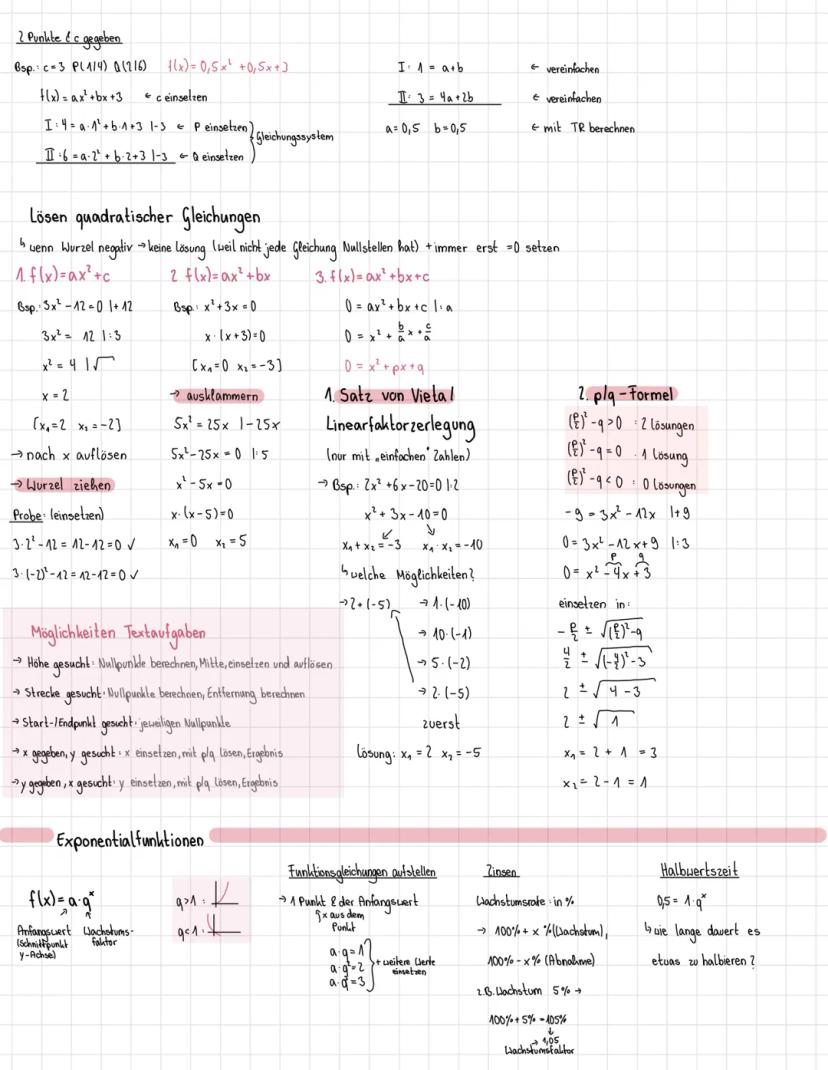 2 Punkte & c gegeben
Bsp.: c=3 P(1/4) Q(2/6) f(x)=0,5x²+0,5x+3
f(x)=ax²+bx+3 ← c einsetzen
I: 4=a·1²+b·1+3 |-3 ← P einsetzen
II: 6=a·2²+b·2+3 |-3 ← Q einsetzen
Gleichungssystem
I: 1 = a+b ← vereinfachen
II: 3 = 4a+2b ← vereinfachen
a=0,5 b=0,5 ← mit TR berechnen
Lösen quadratischer Gleichungen
↳ wenn Wurzel negativ → keine Lösung (weil nicht jede Gleichung Nullstellen hat) + immer erst =0 setzen
1. f(x)=ax²+c
Bsp.: 3x²-12=0 |+12
3x² = 12 |:3
x² = 4 |√
x = 2
[x₁=2 x₂=-2]
→ nach x auflösen
→ Wurzel ziehen
Probe: (einsetzen)
3·2²-12 = 12-12=0 ✓
3·(-2)²-12=12-12=0 ✓
2 f(x)=ax²+bx
Bsp.: x²+3x=0
x·(x+3)=0
[x₁=0 x₂=-3]
→ ausklammern
5x²=25x |-25x
5x²-25x=0 |:5
x²-5x=0
x·(x-5)=0
x₁=0 x₂=5
3. f(x)=ax²+bx+c
0=ax²+bx+c |:a
0=x²+b/a x+c/a
0=x²+px+q
1. Satz von Vieta/
Linearfaktorzerlegung
(nur mit „einfachen" Zahlen)
→ Bsp.: 2x²+6x-20=0 |:2
x²+3x-10=0
x₁+x₂=-3 x₁·x₂=-10
↳ welche Möglichkeiten?
→ 2+(-5) → 1·(-10)
→ 10·(-1)
→ 5·(-2)
→ 2·(-5)
zuerst
Lösung: x₁=2 x₂=-5
2. p/q-Formel
(p/2)²-q>0 : 2 Lösungen
(p/2)²-q=0 : 1 Lösung
(p/2)²-q<0 : 0 Lösungen
-9=3x²-12x |+9
0=3x²-12x+9 |:3
p q
0=x²-4x+3
einsetzen in:
-p/2 ± √((p/2)²-q)
4/2 ± √((-4/2)²-3)
2 ± √(4-3)
2 ± √1
x₁=2+1=3
x₂=2-1=1
Möglichkeiten Textaufgaben
→ Höhe gesucht: Nullpunkte berechnen, Mitte, einsetzen und auflösen
→ Strecke gesucht: Nullpunkte berechnen, Entfernung berechnen
→ Start-/Endpunkt gesucht: jeweiligen Nullpunkte
→ x gegeben, y gesucht: x einsetzen, mit p/q lösen, Ergebnis
→ y gegeben, x gesucht: y einsetzen, mit p/q lösen, Ergebnis
Exponentialfunktionen
f(x)=a·qˣ
Anfangswert
(Schnittpunkt
y-Achse)
Wachstums-
faktor
q>1 :
q<1 :
Funktionsgleichungen aufstellen
→ 1 Punkt & der Anfangswert
x aus dem
Punkt
a·q=1
a·q²=2
a·q³=3
+ weitere Werte
einsetzen
Zinsen
Wachstumsrate: in %
→ 100%+x%(Wachstum),
100%-x% (Abnahme)
z.B. Wachstum 5% →
100%+5%=105%
↓
→ 1,05
Wachstumsfaktor
Halbwertszeit
0,5=1·qˣ
↳ wie lange dauert es
etwas zu halbieren?